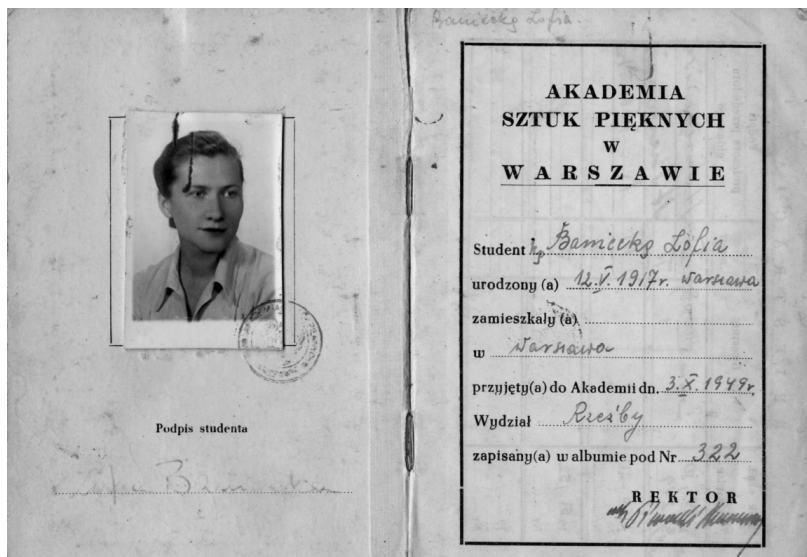 Baniecka Zofia.
AKADEMIA
SZTUK PIĘKNYCH
W
WARSZAWIE
Student ka Baniecka Zofia
urodzony (a) 12.V.1917r. Warszawa
zamieszkały (a)
w Warszawa
przyjęty(a) do Akademii dn. 3.X.1949r.
Wydział Rzeźby
zapisany(a) w albumie pod Nr 322
REKTOR
Podpis studenta